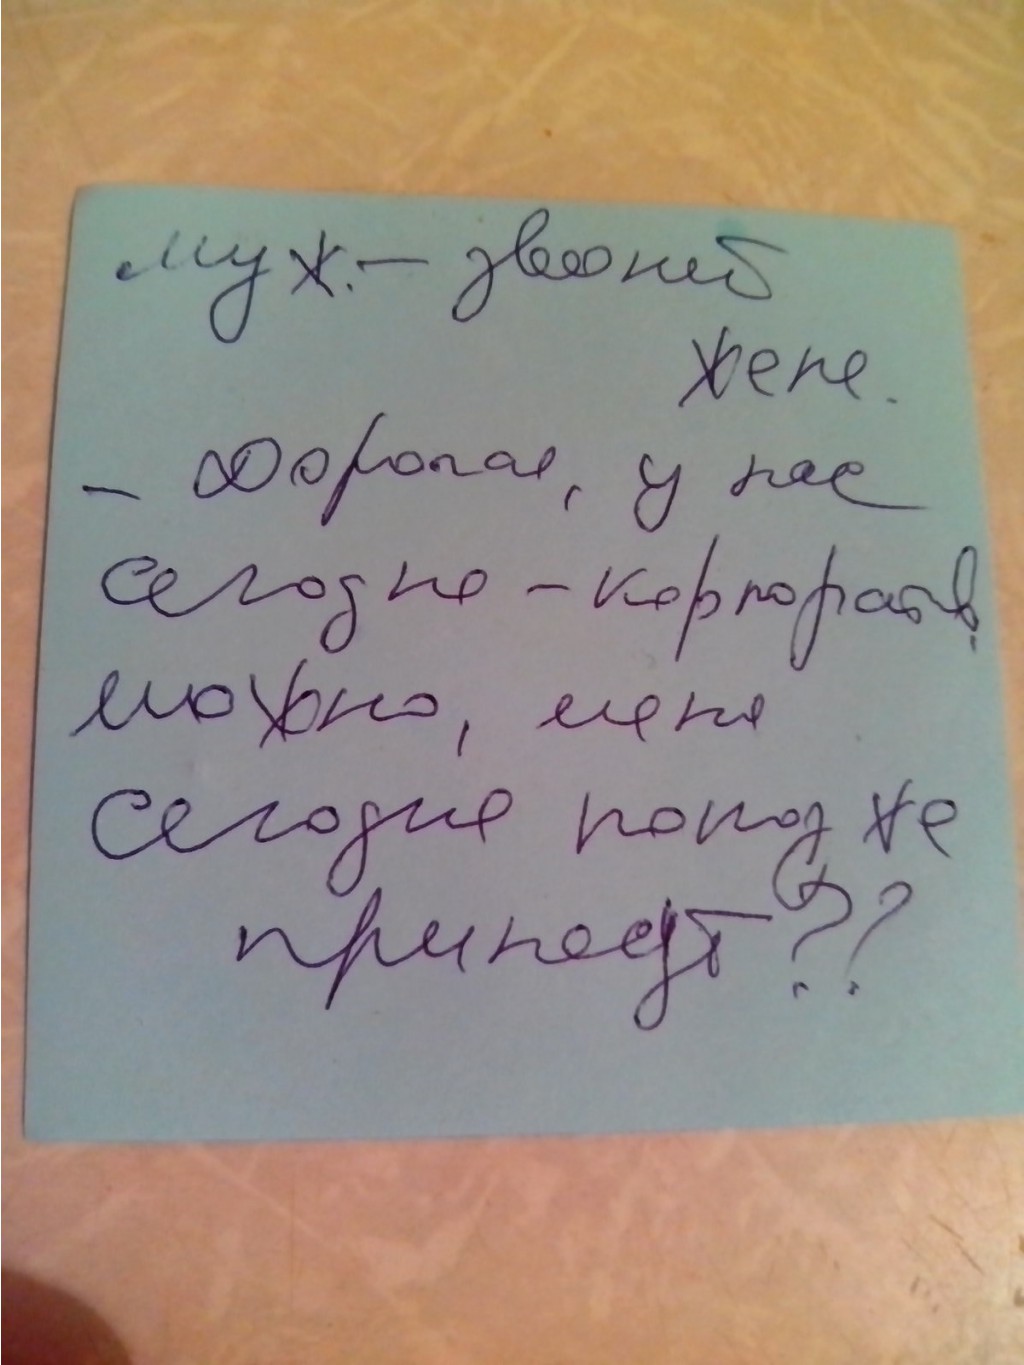 Муж. – звонит
жене.
– Дорогая, у нас
сегодня – корпоратив.
можно, меня
сегодня попозже
принесут??